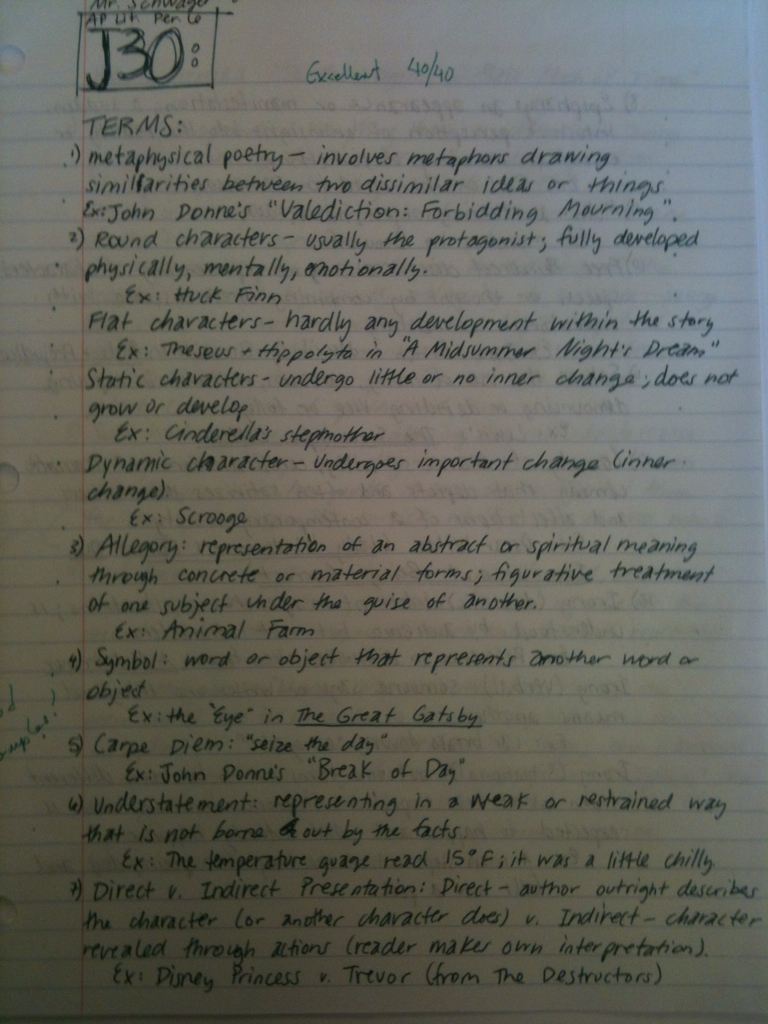 Mr. Schwager
AP Lit. Per 6
J30:
Excellent 40/40
TERMS:
1) metaphysical poetry - involves metaphors drawing
similarities between two dissimilar ideas or things
Ex: John Donne's "Valediction: Forbidding Mourning".
2) Round characters - usually the protagonist; fully developed
physically, mentally, emotionally.
Ex: Huck Finn
Flat characters - hardly any development within the story
Ex: Theseus + Hippolyta in "A Midsummer Night's Dream"
Static characters - undergo little or no inner change; does not
grow or develop
Ex: Cinderella's stepmother
Dynamic character - undergoes important change (inner
change)
Ex: Scrooge
3) Allegory: representation of an abstract or spiritual meaning
through concrete or material forms; figurative treatment
of one subject under the guise of another.
Ex: Animal Farm
4) Symbol: word or object that represents another word or
object
Ex: the "Eye" in The Great Gatsby
5) Carpe Diem: "seize the day"
Ex: John Donne's "Break of Day"
6) Understatement: representing in a weak or restrained way
that is not borne out by the facts
Ex: The temperature guage read 15°F; it was a little chilly
7) Direct v. Indirect Presentation: Direct - author outright describes
the character (or another character does) v. Indirect - character
revealed through actions (reader makes own interpretation).
Ex: Disney Princess v. Trevor (from The Destructors)